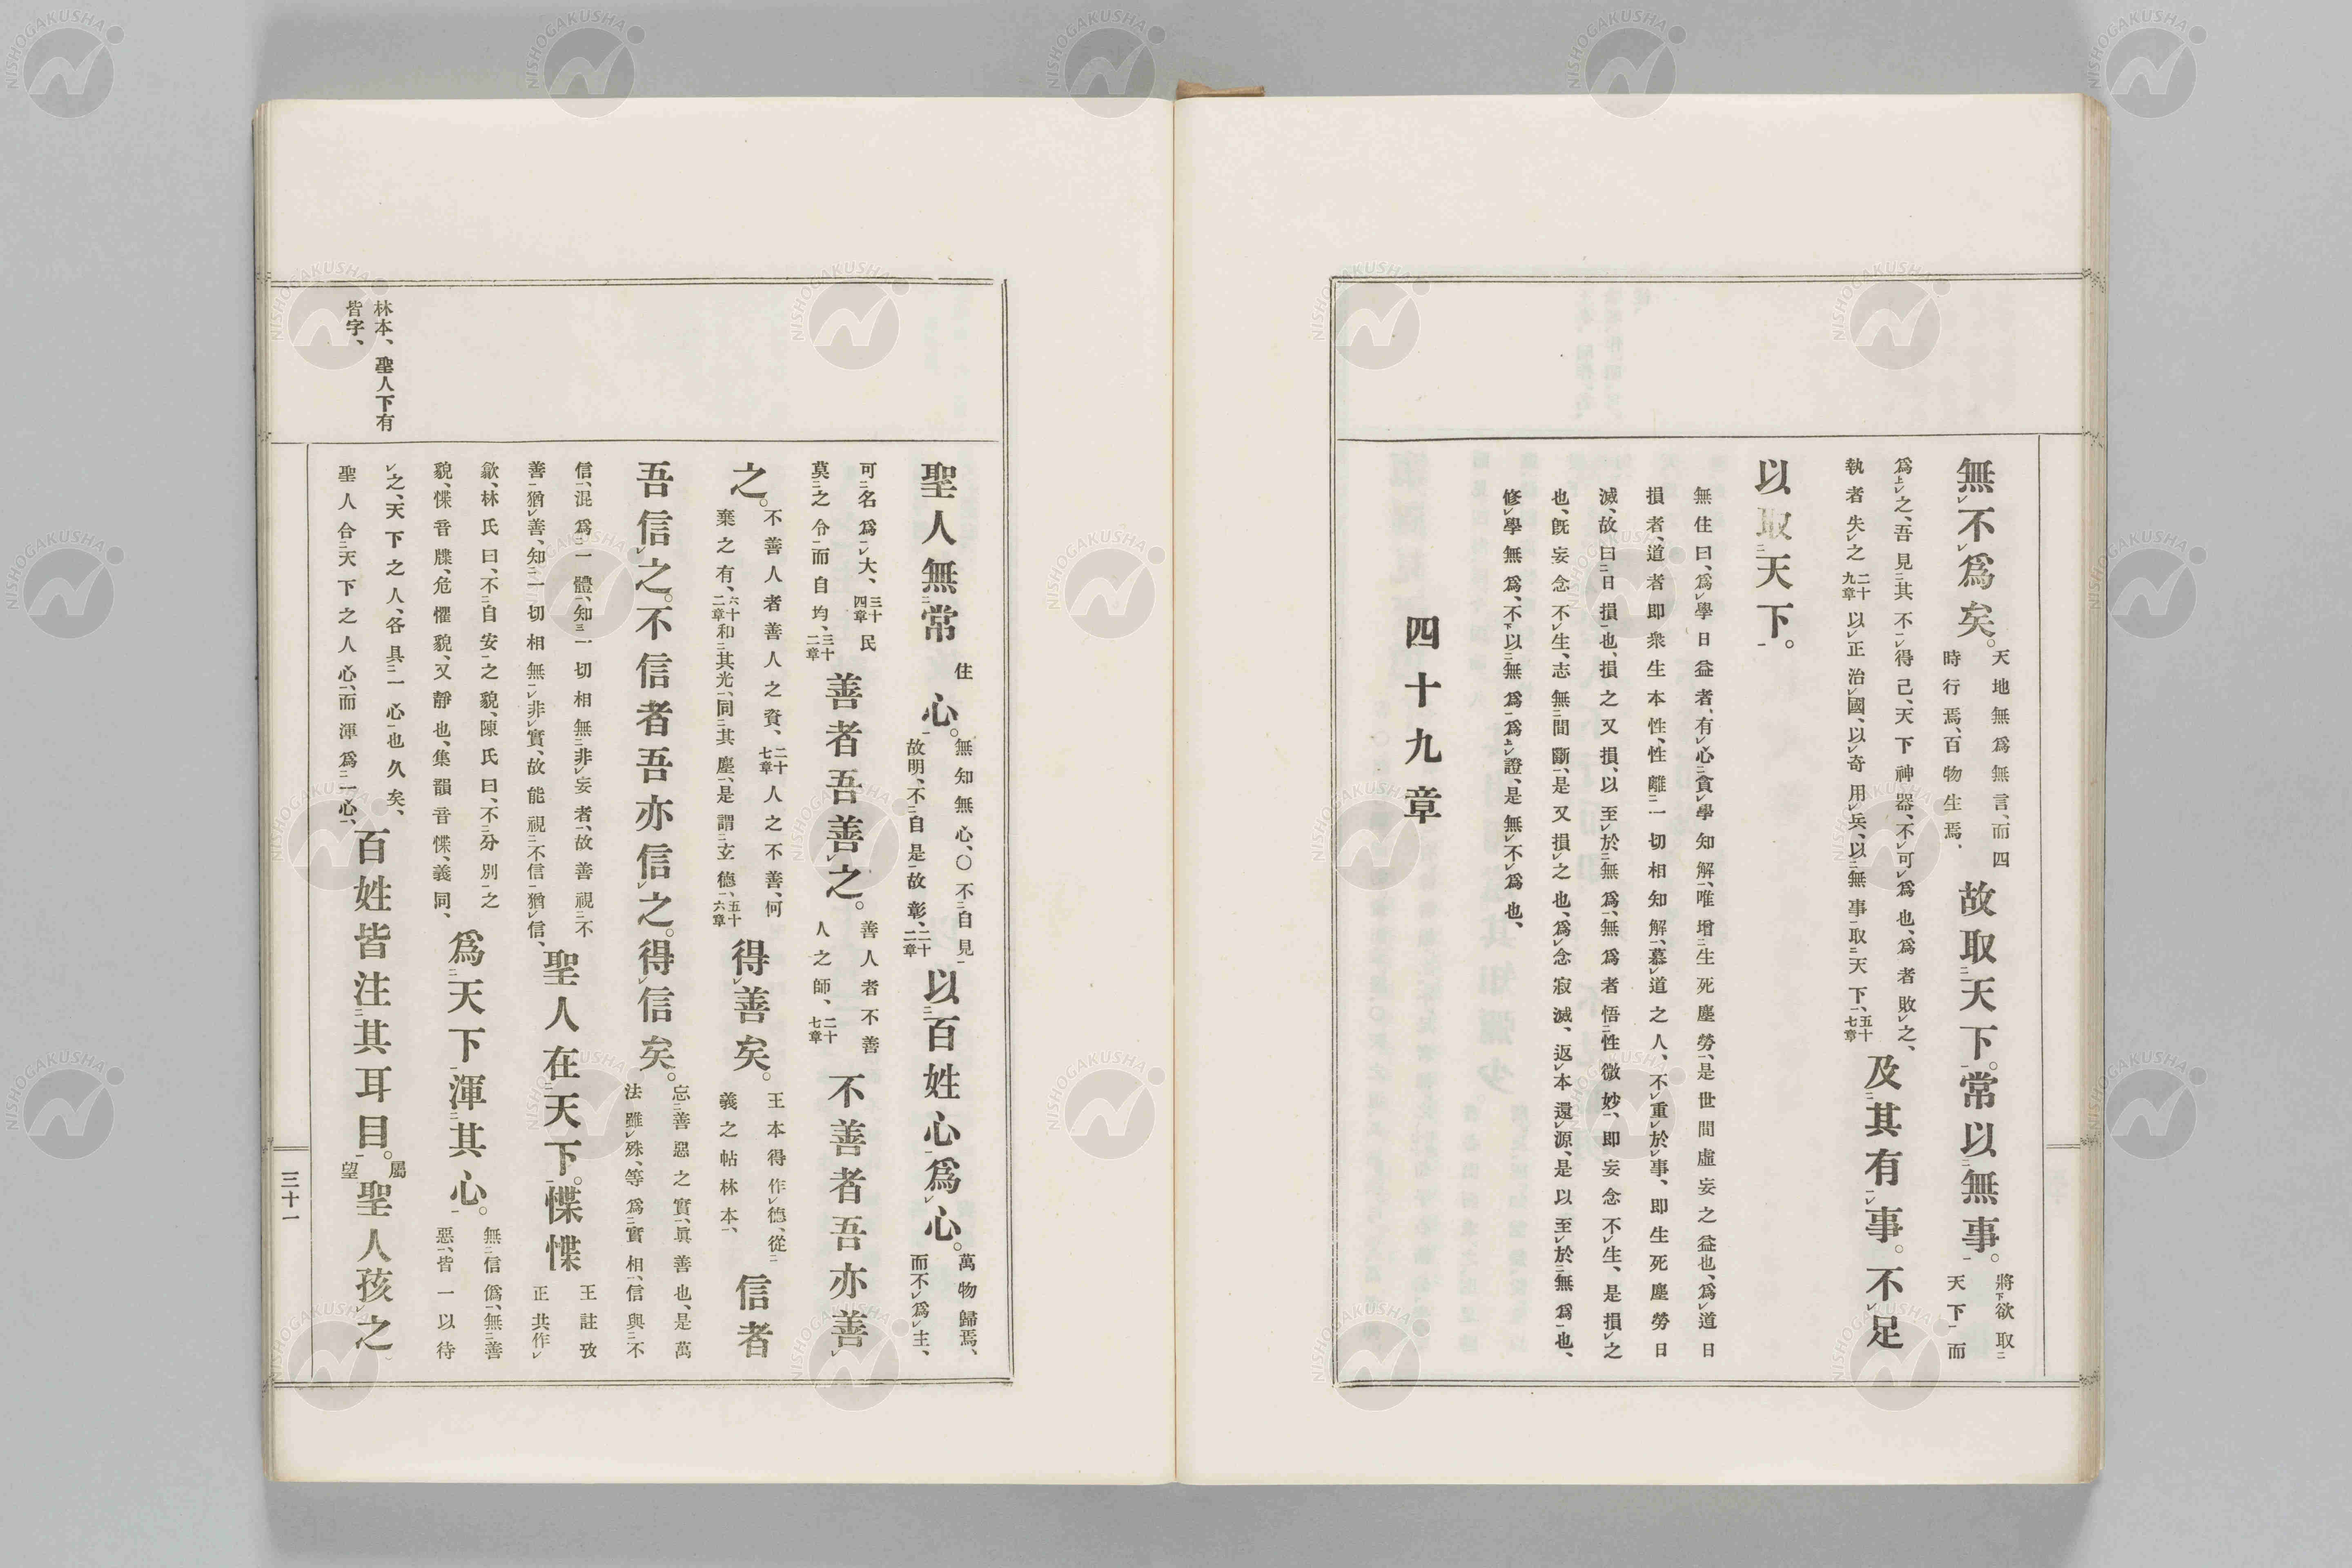 無不爲矣。天地無爲無言、而四
時行焉、百物生焉、故取天下。常以無事。將欲取
天下而
爲之、吾見其不得已、天下神器、不可爲也、爲者敗之、
執者失之二十九章以正治國、以奇用兵、以無事取天下、五十七章及其有事。不足
以取天下。
無住曰、爲學日益者、有心貪學知解、唯增生死塵勞、是世間虛妄之益也、爲道日
損者、道者卽衆生本性、性離一切相知解、慕道之人、不重於事、卽生死塵勞日
滅、故曰日損也、損之又損、以至於無爲、無爲者悟性微妙、卽妄念不生、是損之
也、旣妄念不生、志無間斷、是又損之也、爲念寂滅、返本還源、是以至於無爲也、
修學無爲、不以無爲爲證、是無不爲也、
四十九章
聖人無常住心。無知無心、〇不自見
故明、不自是故彰、二十二章以百姓心爲心。萬物歸焉、
而不爲主、
可名爲大、三十四章民
莫之令而自均、三十二章善者吾善之。善人者不善
人之師、二十七章不善者吾亦善
之。不善人者善人之資、二十七章人之不善、何
棄之有、六十二章和其光、同其塵、是謂玄德、五十六章得善矣。王本得作德、從
義之帖林本、信者
吾信之。不信者吾亦信之。得信矣。忘善惡之實、眞善也、是萬
法雖殊、等爲實相、信與不
信、混爲一體、知一切相無非妄者、故善視不
善猶善、知一切相無非實、故能視不信猶信、聖人在天下。惵惵王註攷
正共作
歙、林氏曰、不自安之貌、陳氏曰、不分別之
貌、惵音牒、危懼貌、又靜也、集韻音惵、義同、爲天下渾其心。無信僞、無善
惡、皆一以待
之、天下之人、各具一心也久矣、
聖人合天下之人心、而渾爲一心、百姓皆注其耳目。屬
望聖人孩之
林本、聖人下有
皆字、
三十一
NISHOGAKUSHA